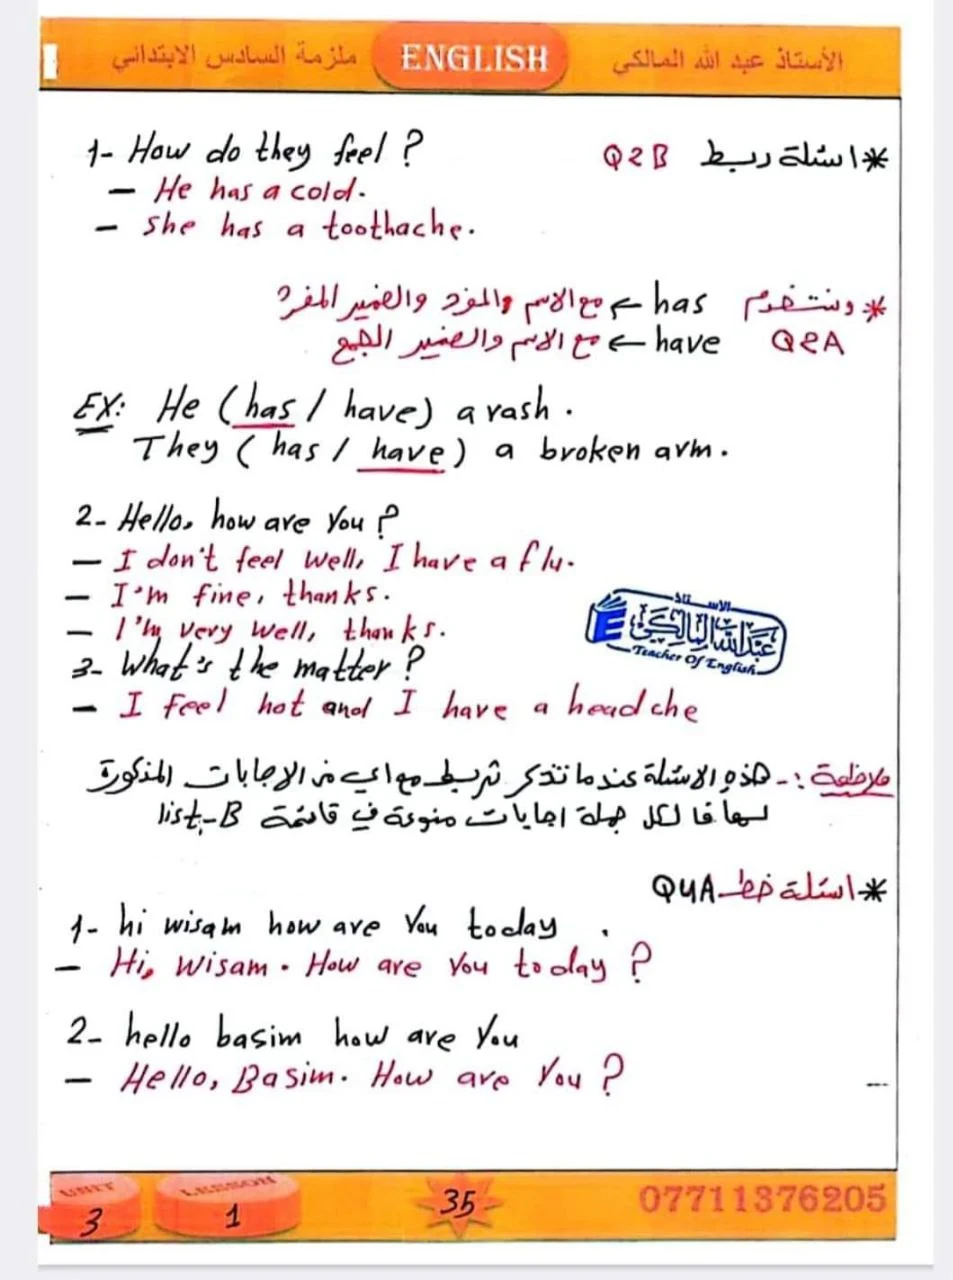 الأستاذ عبد الله المالكي ENGLISH ملزمة السادس الابتدائي
* اسئلة ربط Q2B
1- How do they feel ?
- He has a cold.
- She has a toothache.
* ونستخدم has ← مع الاسم والمفرد والضمير المفرد
Q2A have ← مع الاسم والضمير الجمع
EX: He (has / have) a rash.
They ( has / have ) a broken arm.
2- Hello, how are you ?
- I don't feel well, I have a flu.
- I'm fine, thanks.
- I'm very well, thanks.
الاستاذ
عبدالله المالكي
Teacher Of English
3- What's the matter ?
- I feel hot and I have a headche
ملاحظة :- هذه الاسئلة عندما تذكر تربط مع اي من الاجابات المذكورة
لكل جملة اجابات منوعة في قائمة list-B
* اسئلة خط Q4A
1- hi wisam how are you today .
- Hi, Wisam. How are you today ?
2- hello basim how are you
- Hello, Basim. How are you ?
UNIT 3 LESSON 1 35 07711376205